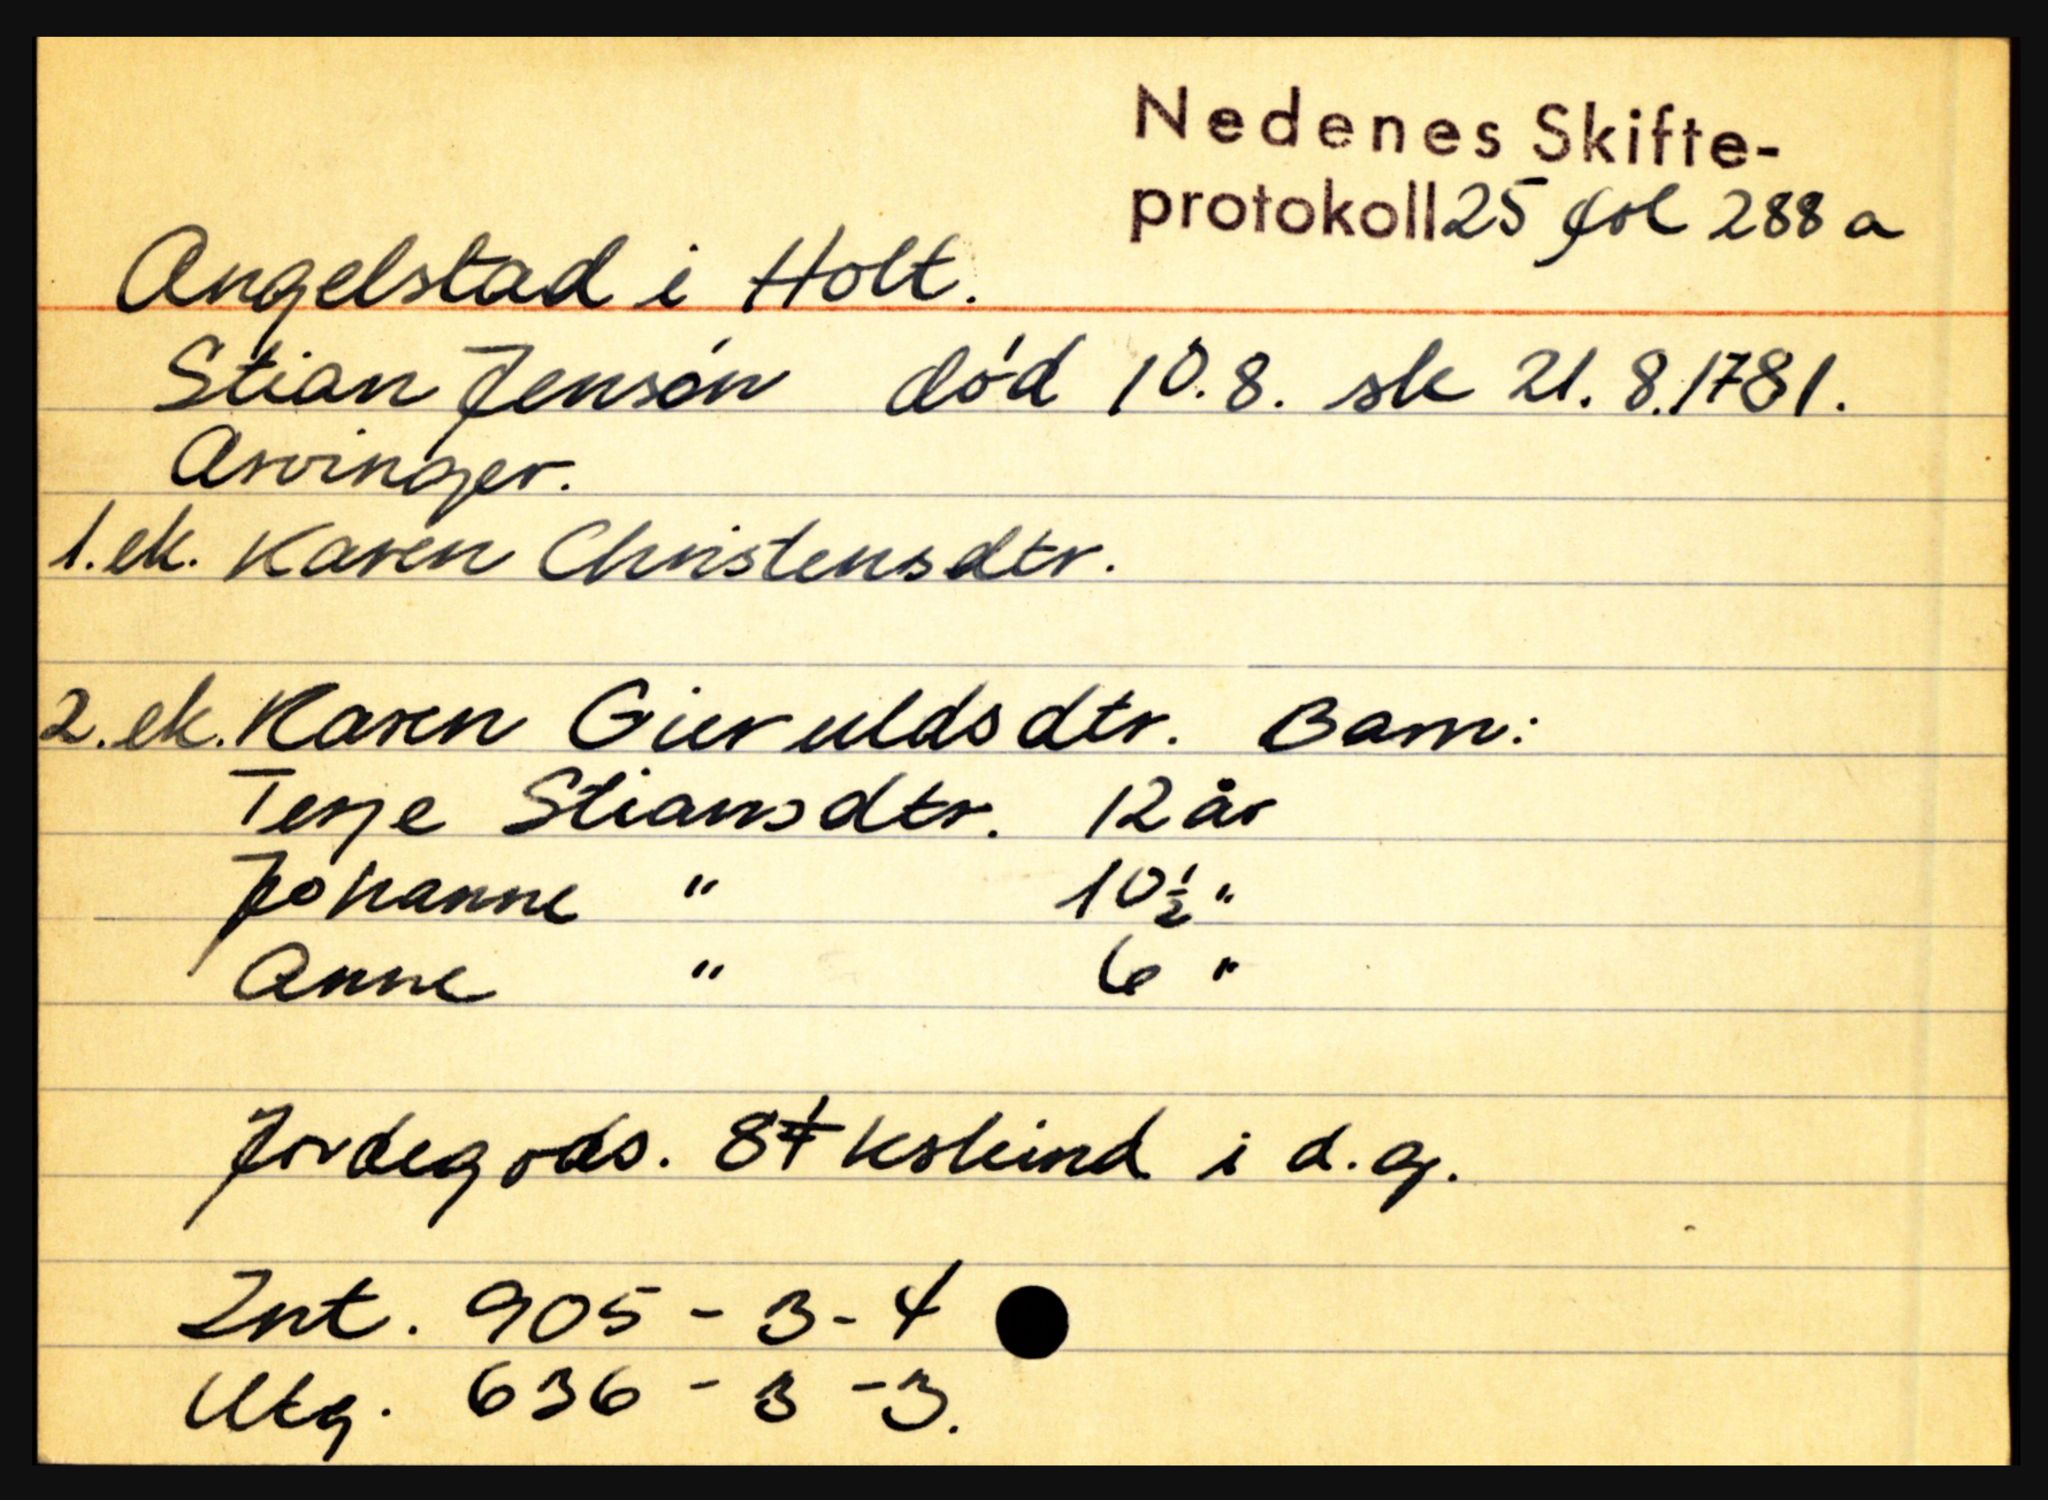 Nedenes Skifte-
protokoll 25 fol 288 a
Angelstad i Holt.
Stian Jensøn død 10.8. sk 21.8.1781.
Arvinger.
1.ek. Karen Christensdtr.
2.ek. Karen Gieruldsdtr. Barn:
Terje Stiansdtr. 12 år
Johanne " 10½ "
Anne " 6 "
Jordegods. 8¼ kskind i d.g.
Int. 905 - 3 - 4
Utg. 636 - 3 - 3.